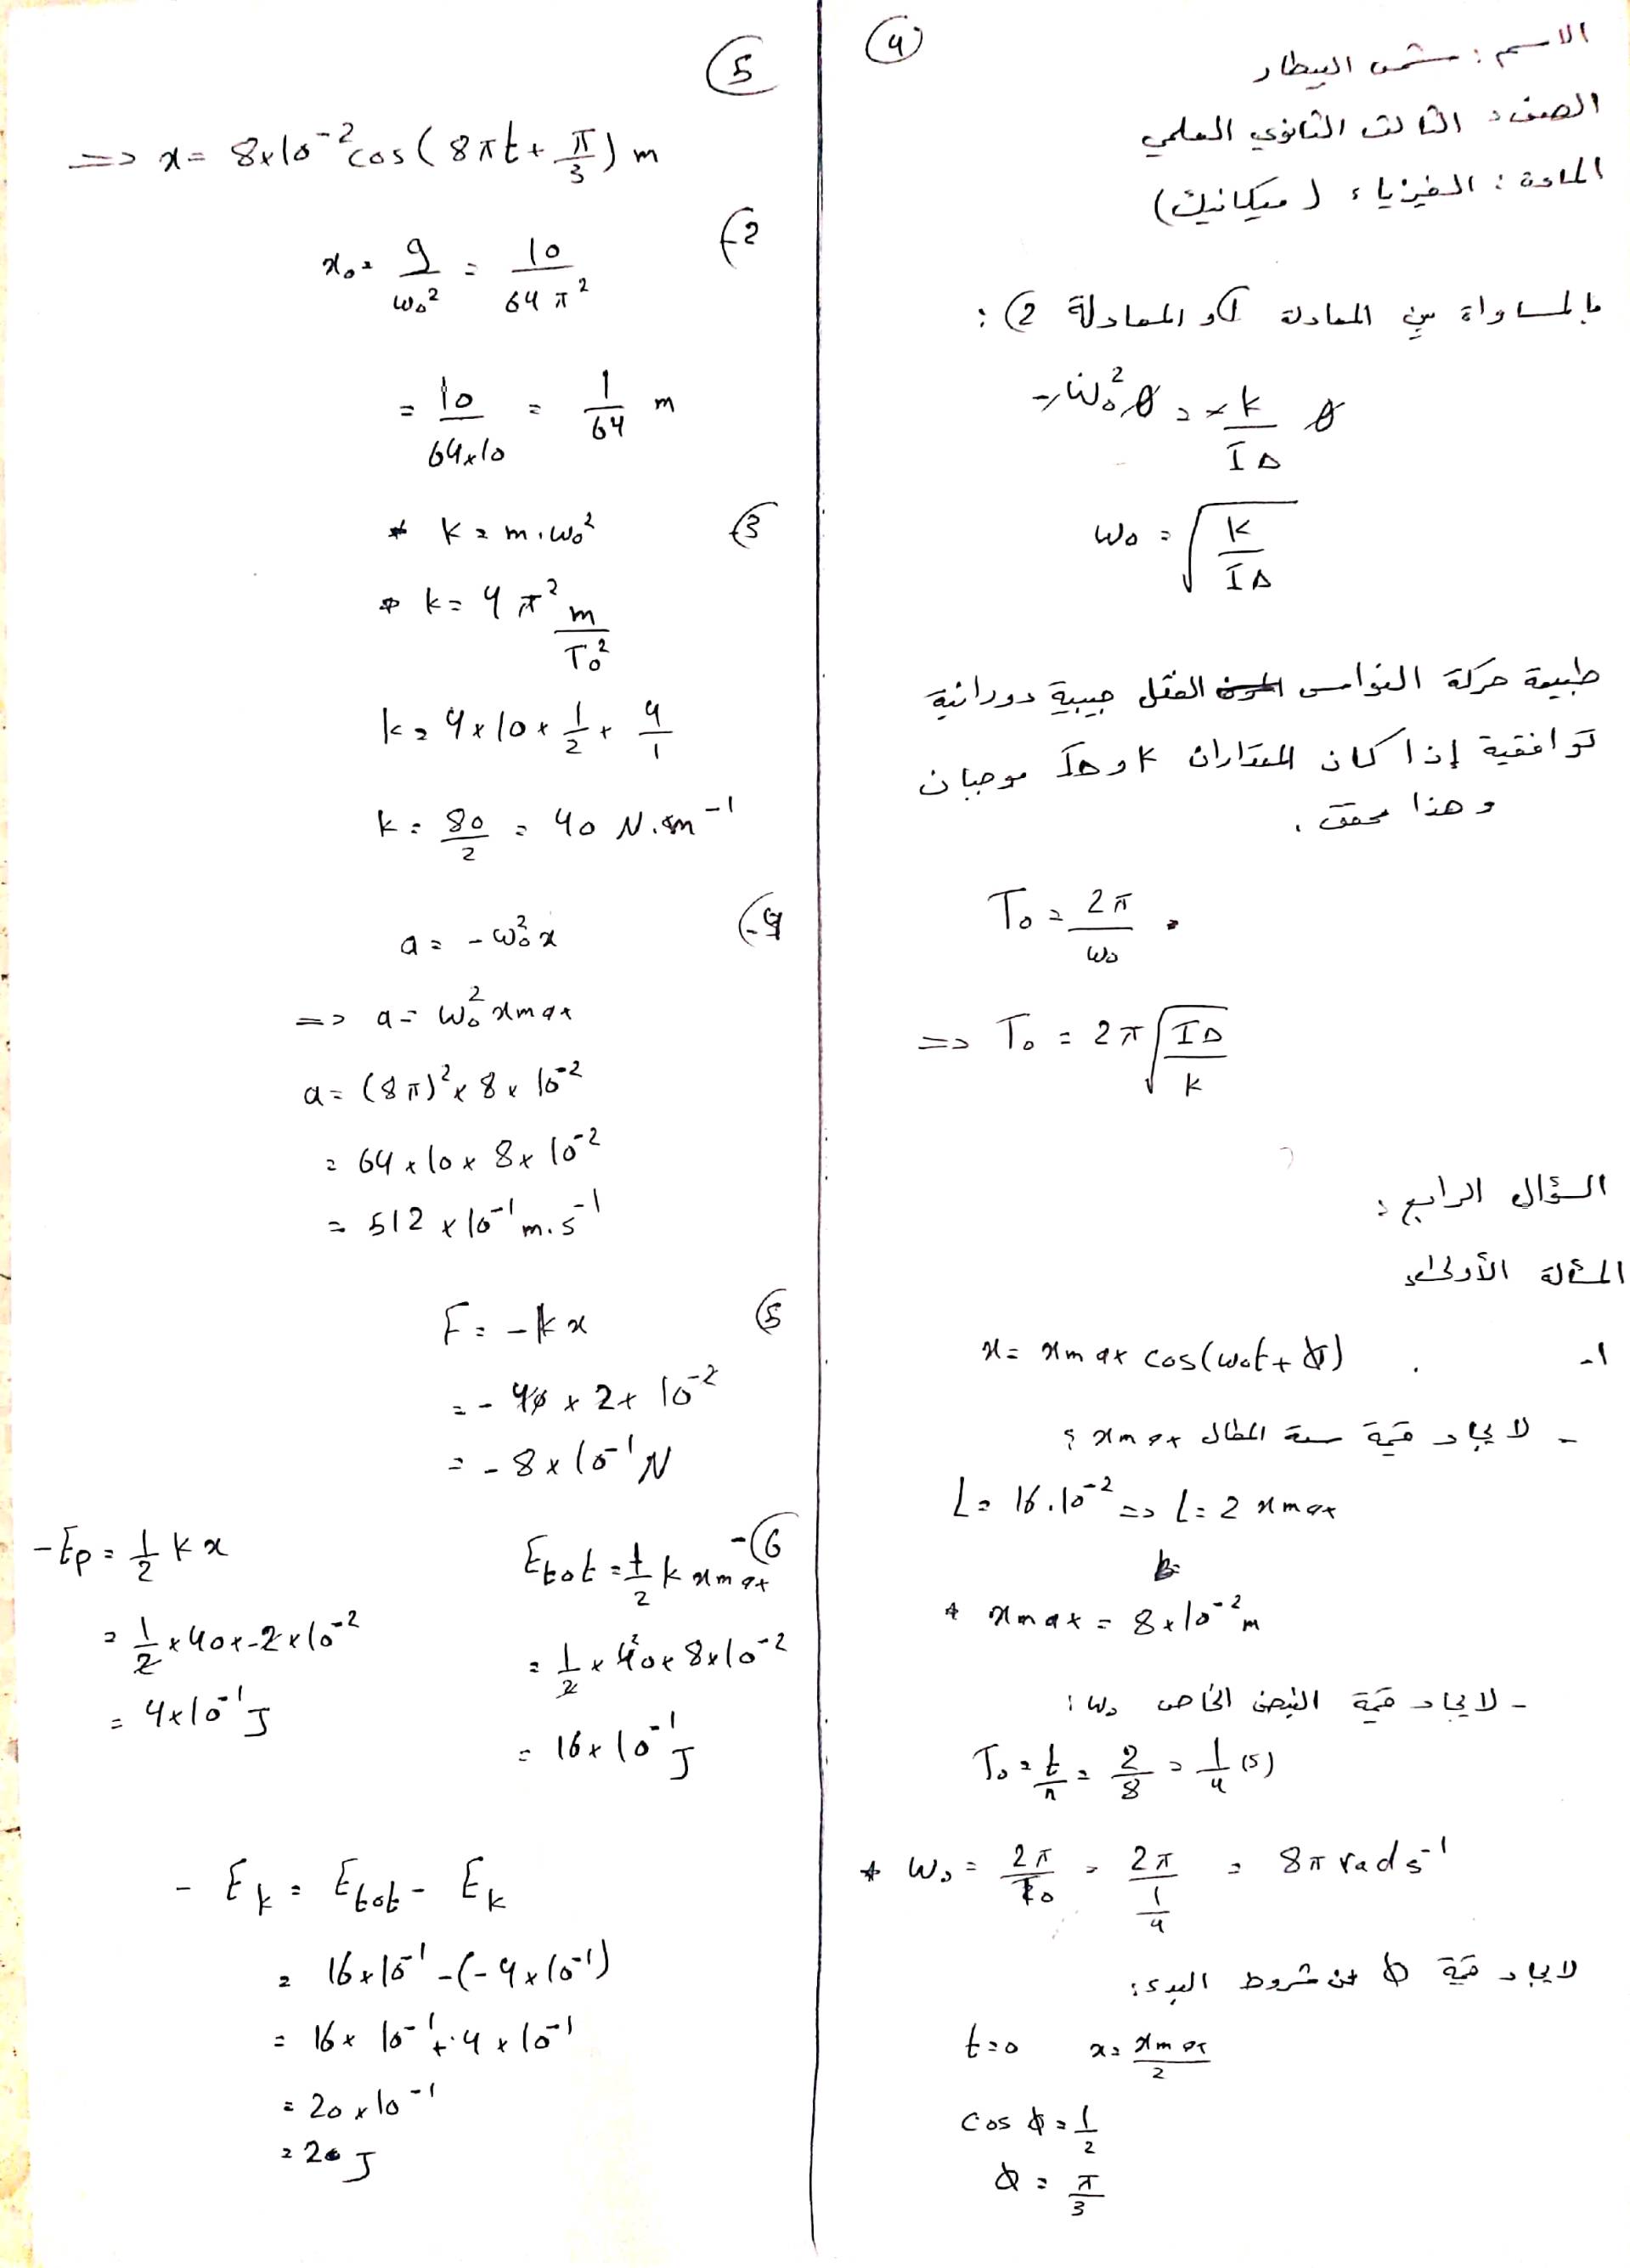 ④
الاسم : شمس البيطار
الصف : الثالث الثانوي العلمي
المادة : الفيزياء (ميكانيك)
بالمساواة بين المعادلة ① والمعادلة ② :
-ω₀²θ = -k/I∆ θ
ω₀ = √(k/I∆)
طبيعة حركة النواس الفتل جيبية دورانية
توافقية إذا كان المقداران k و I∆ موجبان
وهذا محقق .
T₀ = 2π/ω₀
=> T₀ = 2π√(I∆/k)
السؤال الرابع :
المسألة الأولى:
1- x = xmax cos(ω₀t + φ)
- لايجاد قيمة سعة المطال xmax ؟
L = 16.10⁻² => L = 2 xmax
* xmax = 8×10⁻² m
- لايجاد قيمة النبض الخاص ω₀ :
T₀ = t/n = 2/8 = 1/4 (s)
* ω₀ = 2π/T₀ = 2π/(1/4) = 8π rad s⁻¹
لايجاد قيمة φ من شروط البدء :
t=0 x = xmax/2
cos φ = 1/2
φ = π/3
⑤
=> x = 8×10⁻² cos(8πt + π/3) m
2-
x₀ = g/ω₀² = 10/64π²
= 10/64×10 = 1/64 m
3-
* k = m.ω₀²
* k = 4π² m/T₀²
k = 4×10×1/2×4/1
k = 80/2 = 40 N.m⁻¹
4-
a = -ω₀²x
=> a = ω₀² xmax
a = (8π)² × 8 × 10⁻²
= 64×10×8×10⁻²
= 512×10⁻¹ m.s⁻¹
5-
F = -kx
= - 40 × 2 × 10⁻²
= - 8×10⁻¹ N
6-
Etot = 1/2 k xmax
= 1/2 × 40 × 8×10⁻²
= 16×10⁻¹ J
- Ep = 1/2 k x
= 1/2 ×40×-2×10⁻²
= 4×10⁻¹ J
- Ek = Etot - Ek
= 16×10⁻¹ -(-4×10⁻¹)
= 16×10⁻¹ + 4×10⁻¹
= 20×10⁻¹
= 20 J